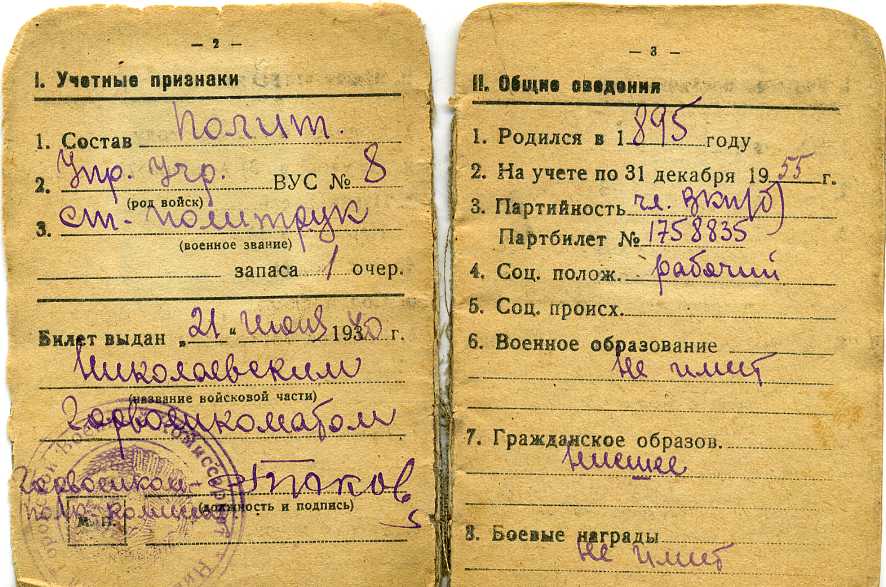 — 2 —
I. Учетные признаки
1. Состав Полит.
2. Упр. Учр. ВУС № 8
(род войск)
3. ст. политрук
(военное звание)
запаса 1 очер.
Билет выдан „21“ июня 1940 г.
Николаевским
(название войсковой части)
Горвоенкоматом
Горвоенком
(должность и подпись)
М. П.
— 3 —
II. Общие сведения
1. Родился в 1895 году
2. На учете по 31 декабря 1955 г.
3. Партийность чл. ВКП(б)
Партбилет № 1758835
4. Соц. полож. рабочий
5. Соц. происх.
6. Военное образование
Не имит
7. Гражданское образов.
Нисшее
8. Боевые награды
Не имит